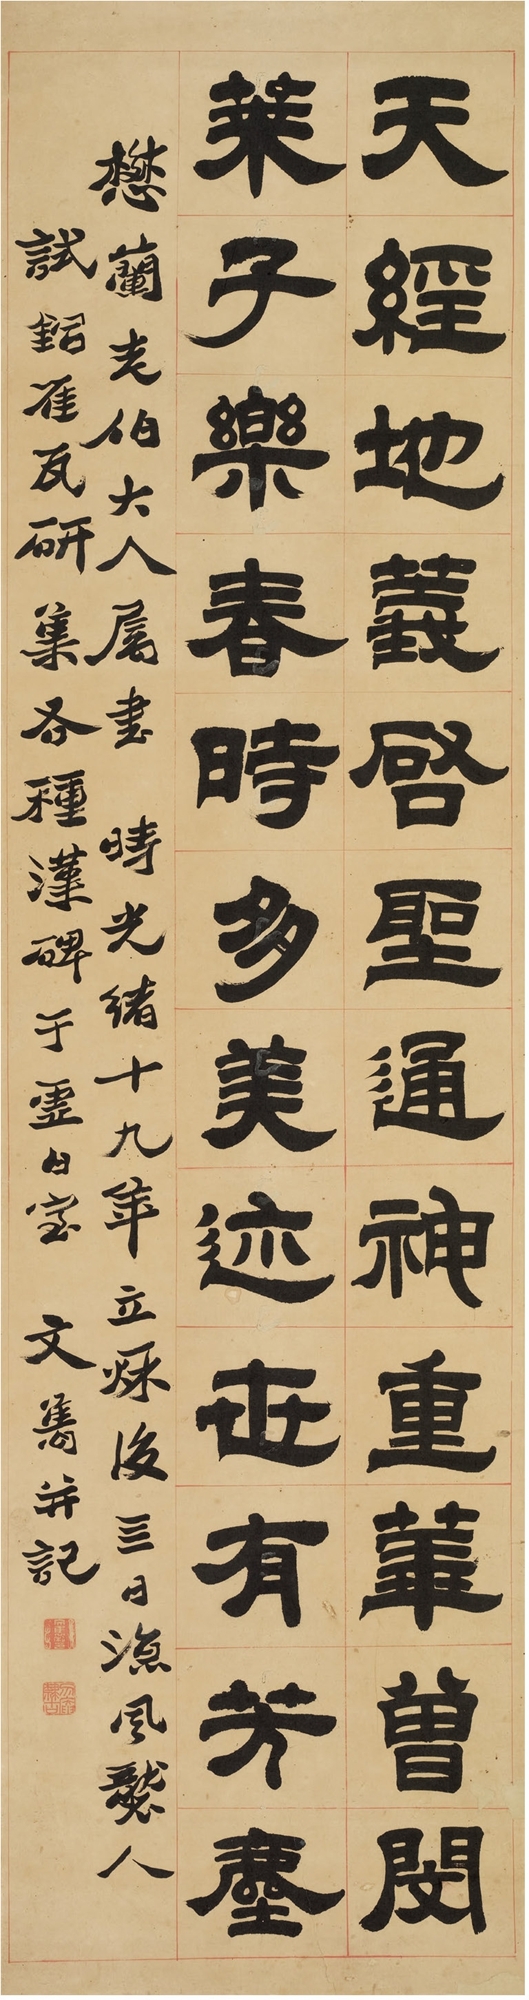 天經地義啓聖通神重華曽閔
萊子樂春時多美迹世有芳塵
懋蘭老伯大人屬書　時光緒十九年立秌後三日涼風襲人
試銅雀瓦硏集各種漢碑于雲白室　文雋并記